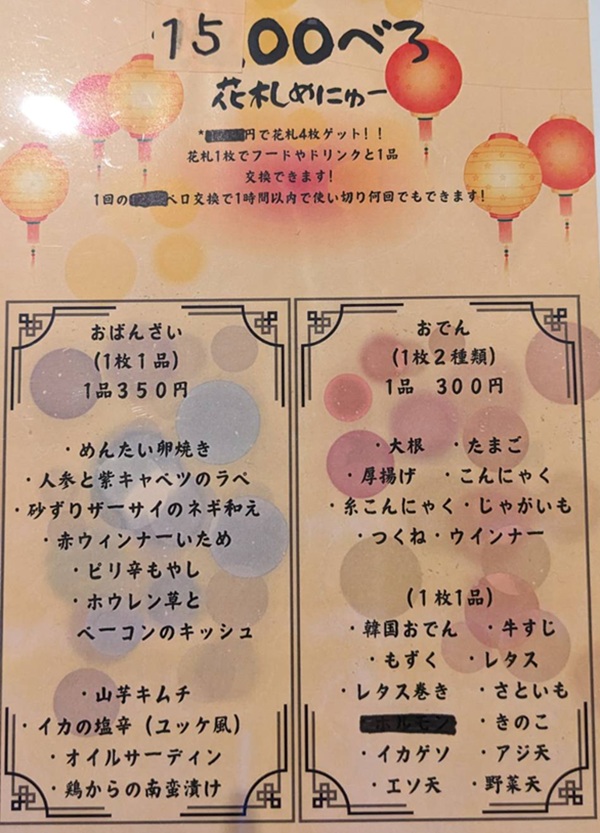 1500べろ
花札めにゅー
*円で花札4枚ゲット！！
花札1枚でフードやドリンクと1品
交換できます！
1回のベロ交換で1時間以内で使い切り何回でもできます！
おばんざい
(1枚1品)
1品350円
・めんたい卵焼き
・人参と紫キャベツのラペ
・砂ずりザーサイのネギ和え
・赤ウィンナーいため
・ピリ辛もやし
・ホウレン草と
ベーコンのキッシュ
・山芋キムチ
・イカの塩辛（ユッケ風）
・オイルサーディン
・鶏からの南蛮漬け
おでん
(1枚2種類)
1品 300円
・大根 ・たまご
・厚揚げ ・こんにゃく
・糸こんにゃく・じゃがいも
・つくね・ウインナー
(1枚1品)
・韓国おでん ・牛すじ
・もずく ・レタス
・レタス巻き ・さといも
・きのこ
・イカゲソ ・アジ天
・エソ天 ・野菜天